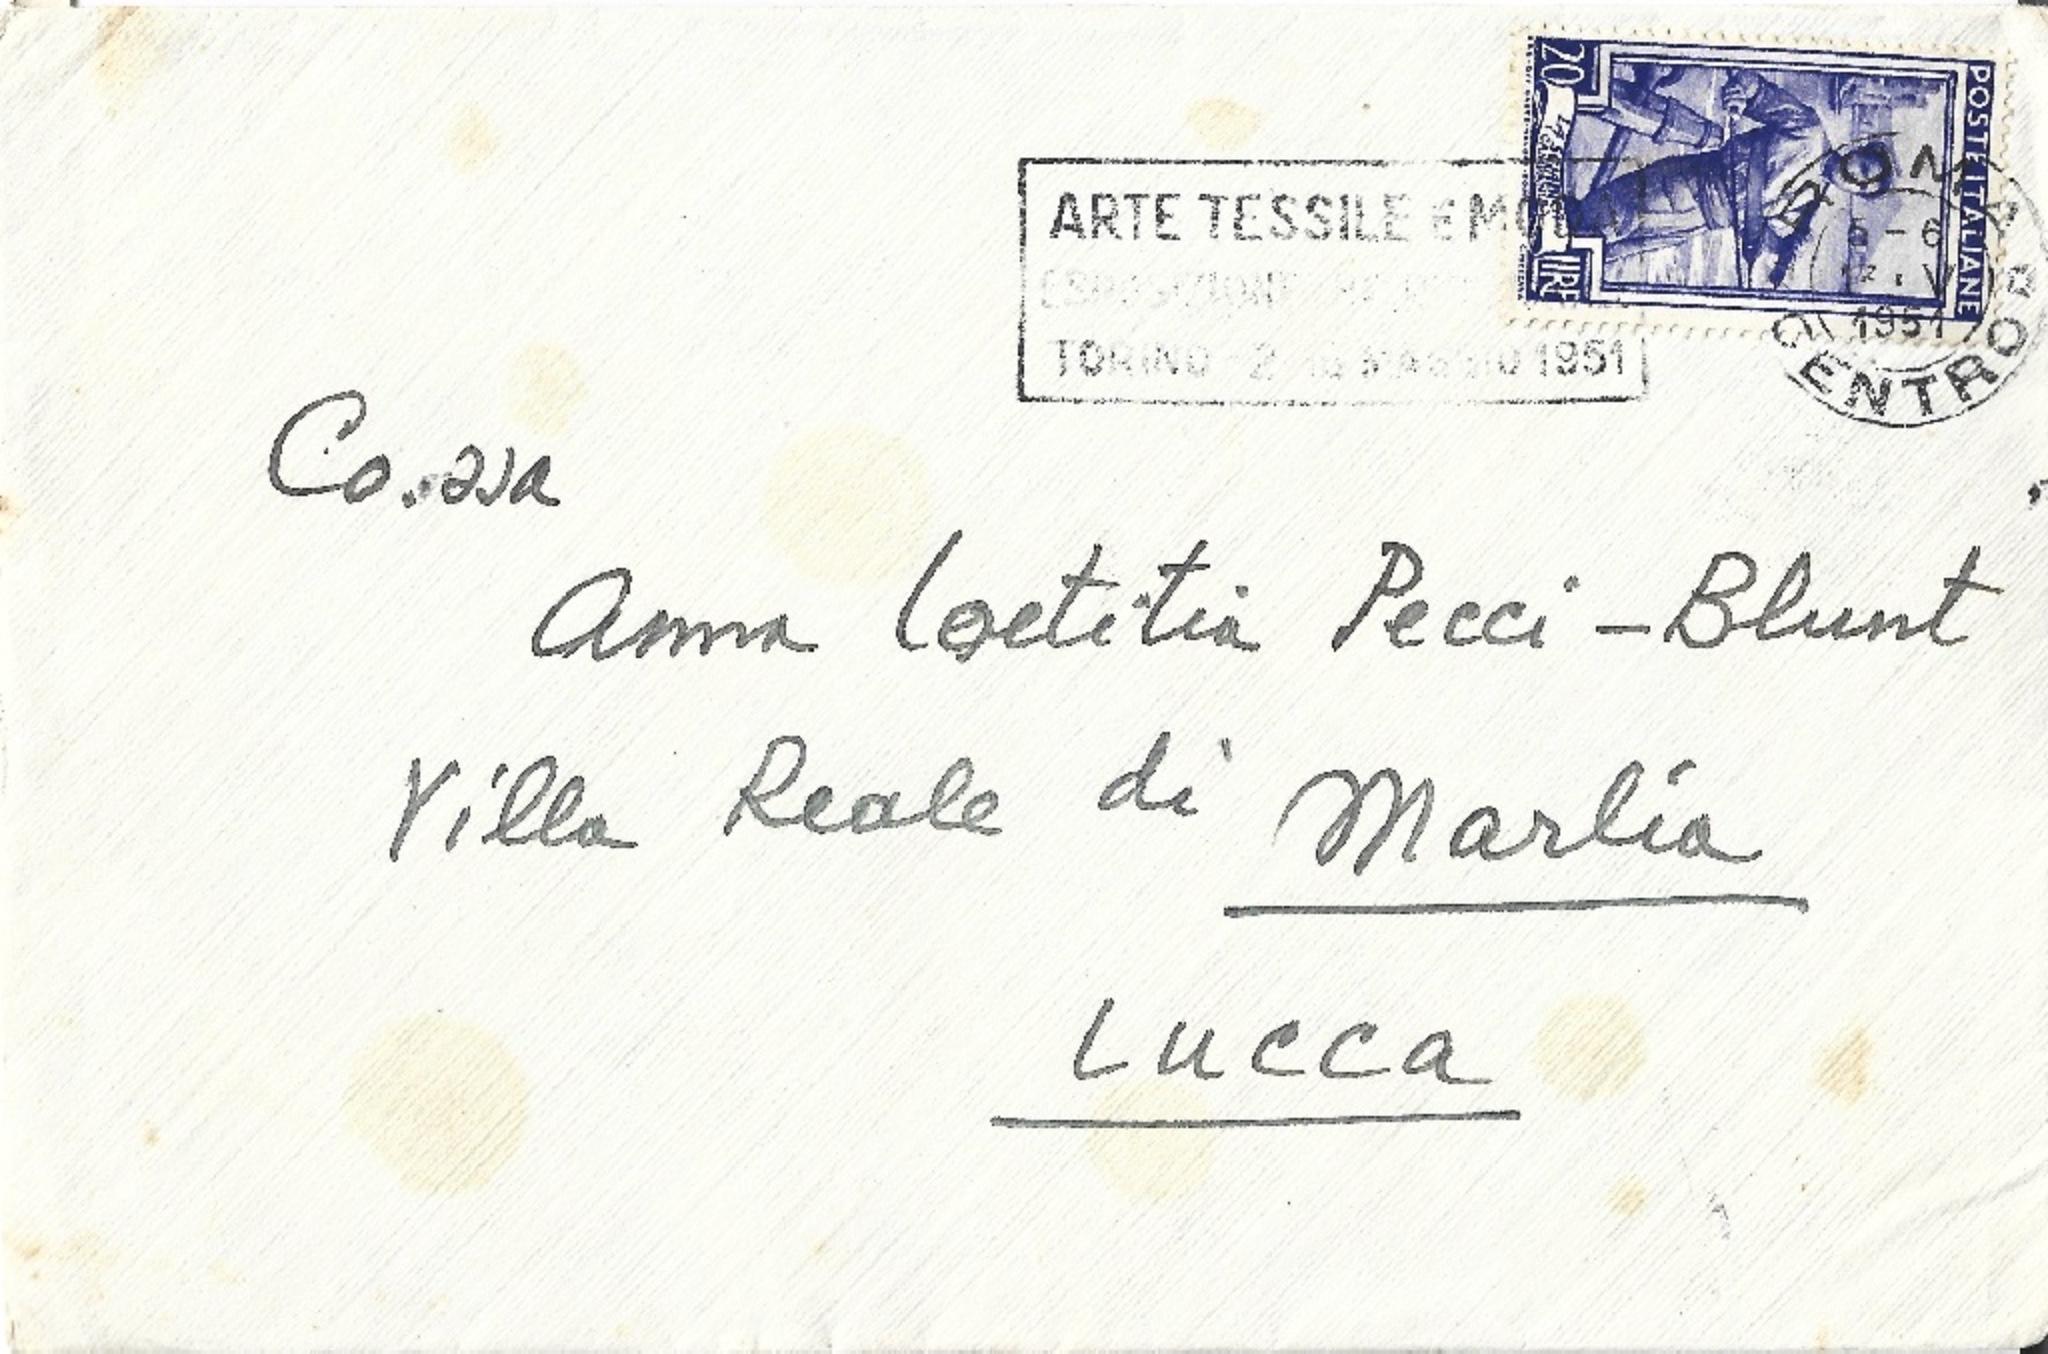 ARTE TESSILE E MODA
ESPOSIZIONE
TORINO 2 - 16 MAGGIO 1951
20
LIRE
POSTE ITALIANE
ROMA
5 - 6
1951
CENTRO
Co.ssa
Anna Laetitia Pecci - Blunt
Villa Reale di Marlia
Lucca